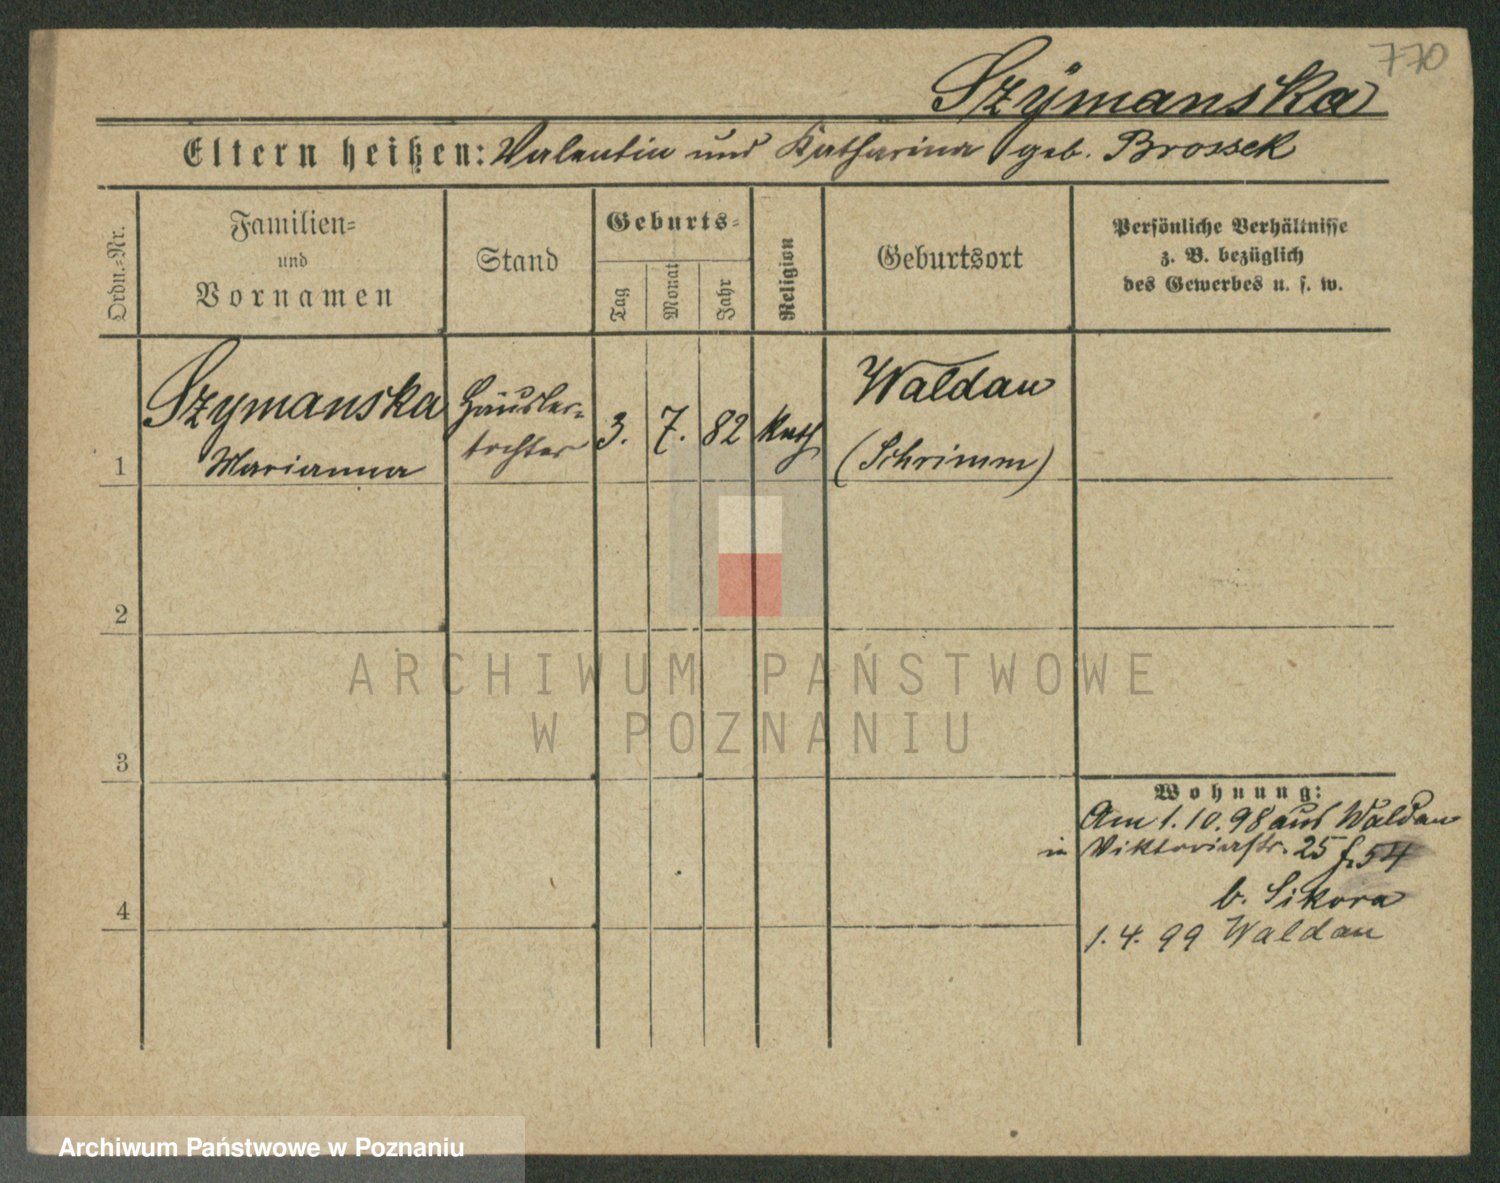 770
Szÿmanska
Eltern heißen: Valentin und Katharina geb. Brossek
Ordn.-Nr.
Familien-
und
Vornamen
Stand
Geburts-
Tag
Monat
Jahr
Religion
Geburtsort
Persönliche Verhältnisse
z. B. bezüglich
des Gewerbes u. s. w.
1
Szymanska
Marianna
Häusler-
tochter
3. 7. 82
Kath
Waldau
(Schrimm)
2
3
4
ARCHIWUM PAŃSTWOWE
W POZNANIU
Wohnung:
Am 1.10.98 aus Waldau
in Viktoriastr. 25
b. Sikora
1.4.99 Waldau
Archiwum Państwowe w Poznaniu